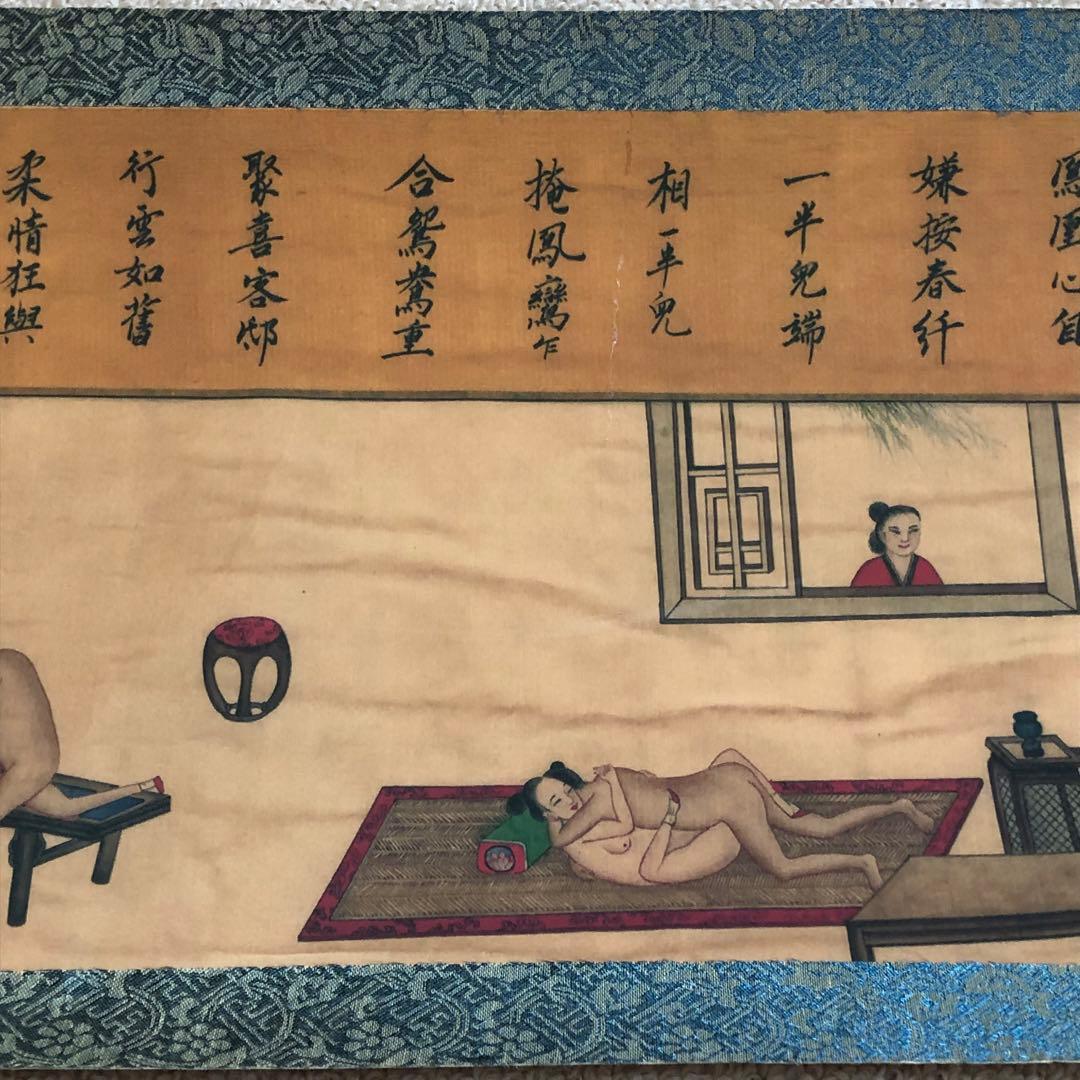 鳳凰心
嫌按春纤
一半兒端
相一半兒
掩鳳鸞乍
合鴛鴦重
聚喜客邸
行雲如舊
柔情狂與